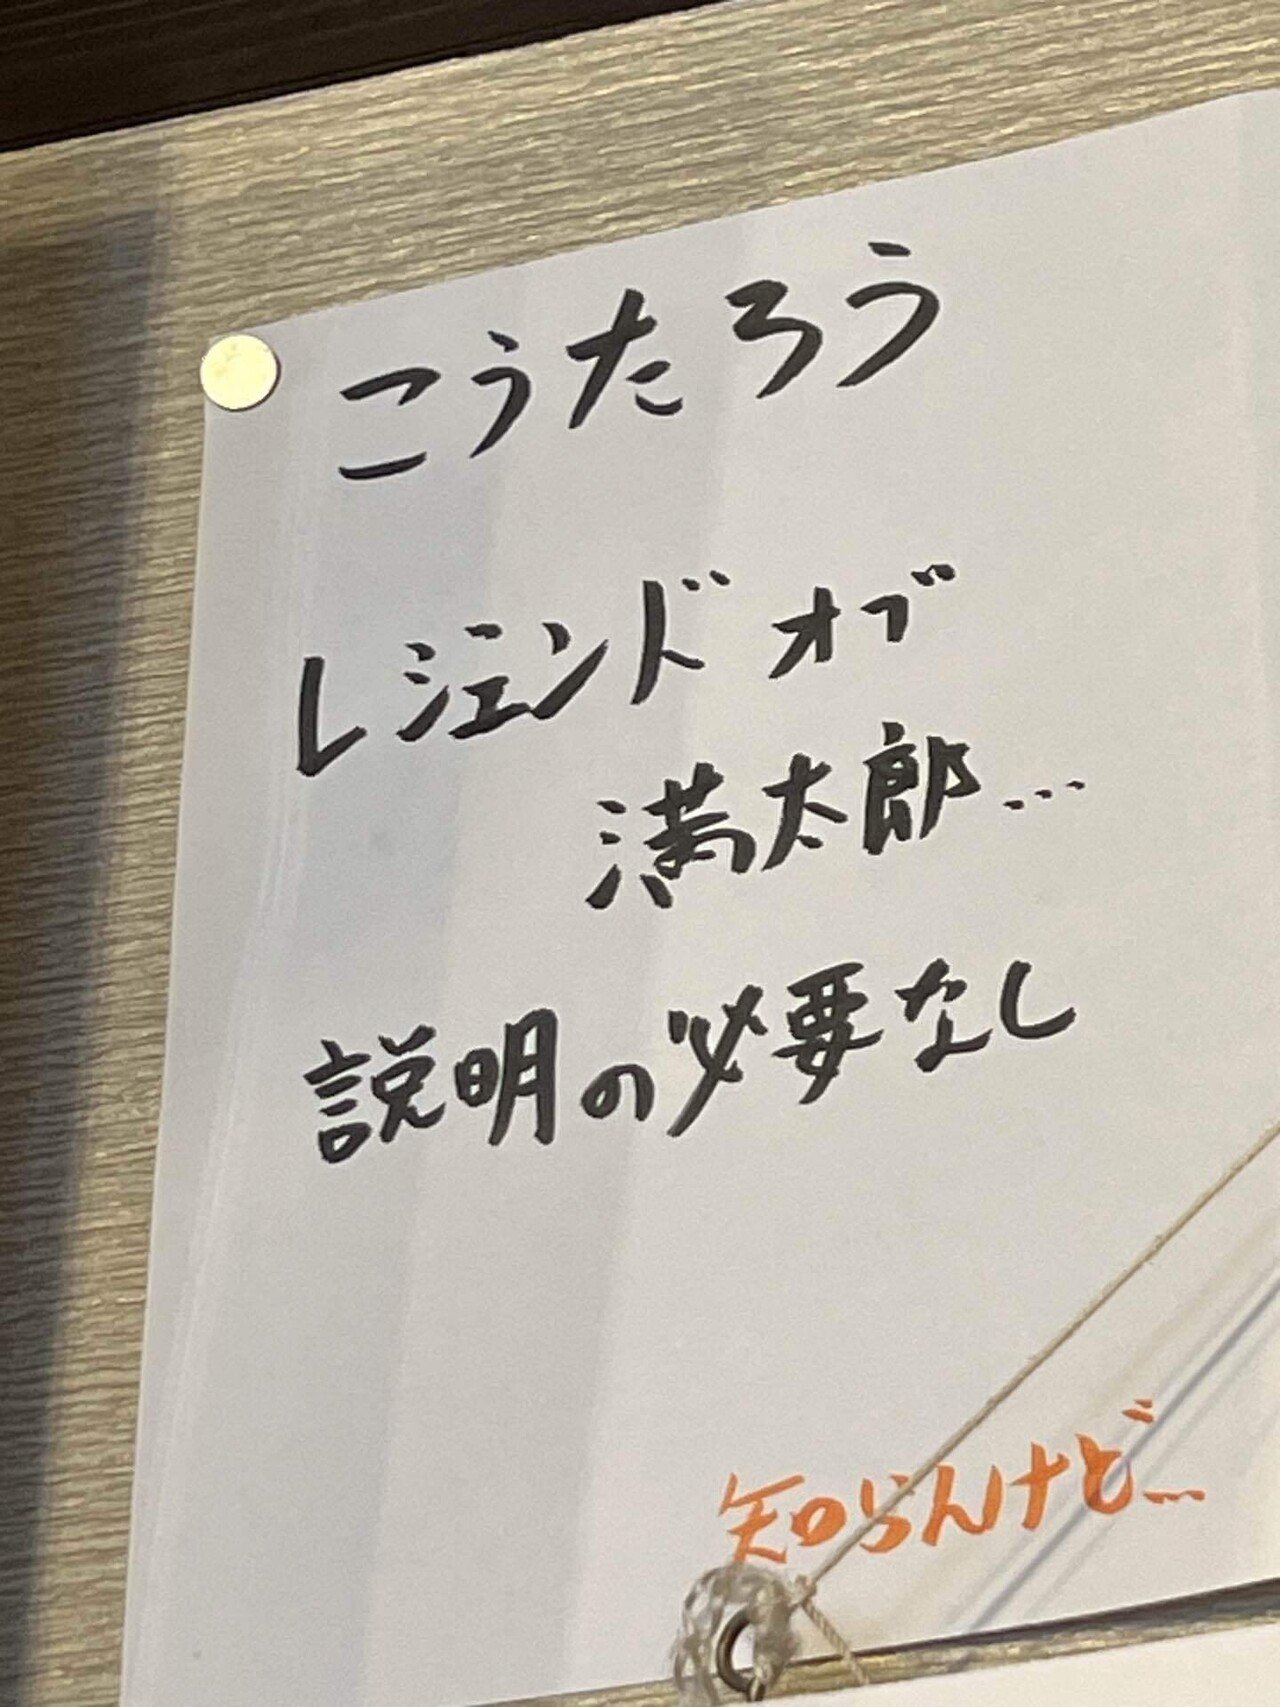 こうたろう
レジェンドオブ
満太郎…
説明の必要なし
知らんけど…